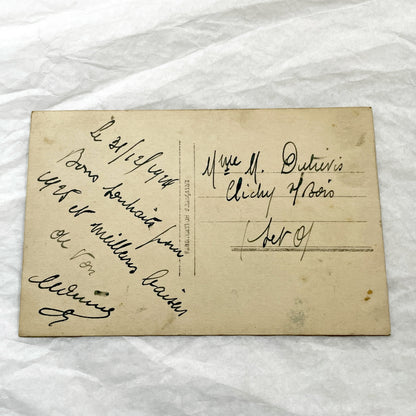 Le 31/12/1924
Bons souhaits pour
1925 et meilleurs baisers
de Von
Mme M. Dutrévis
Clichy s/Bois
(S et O)